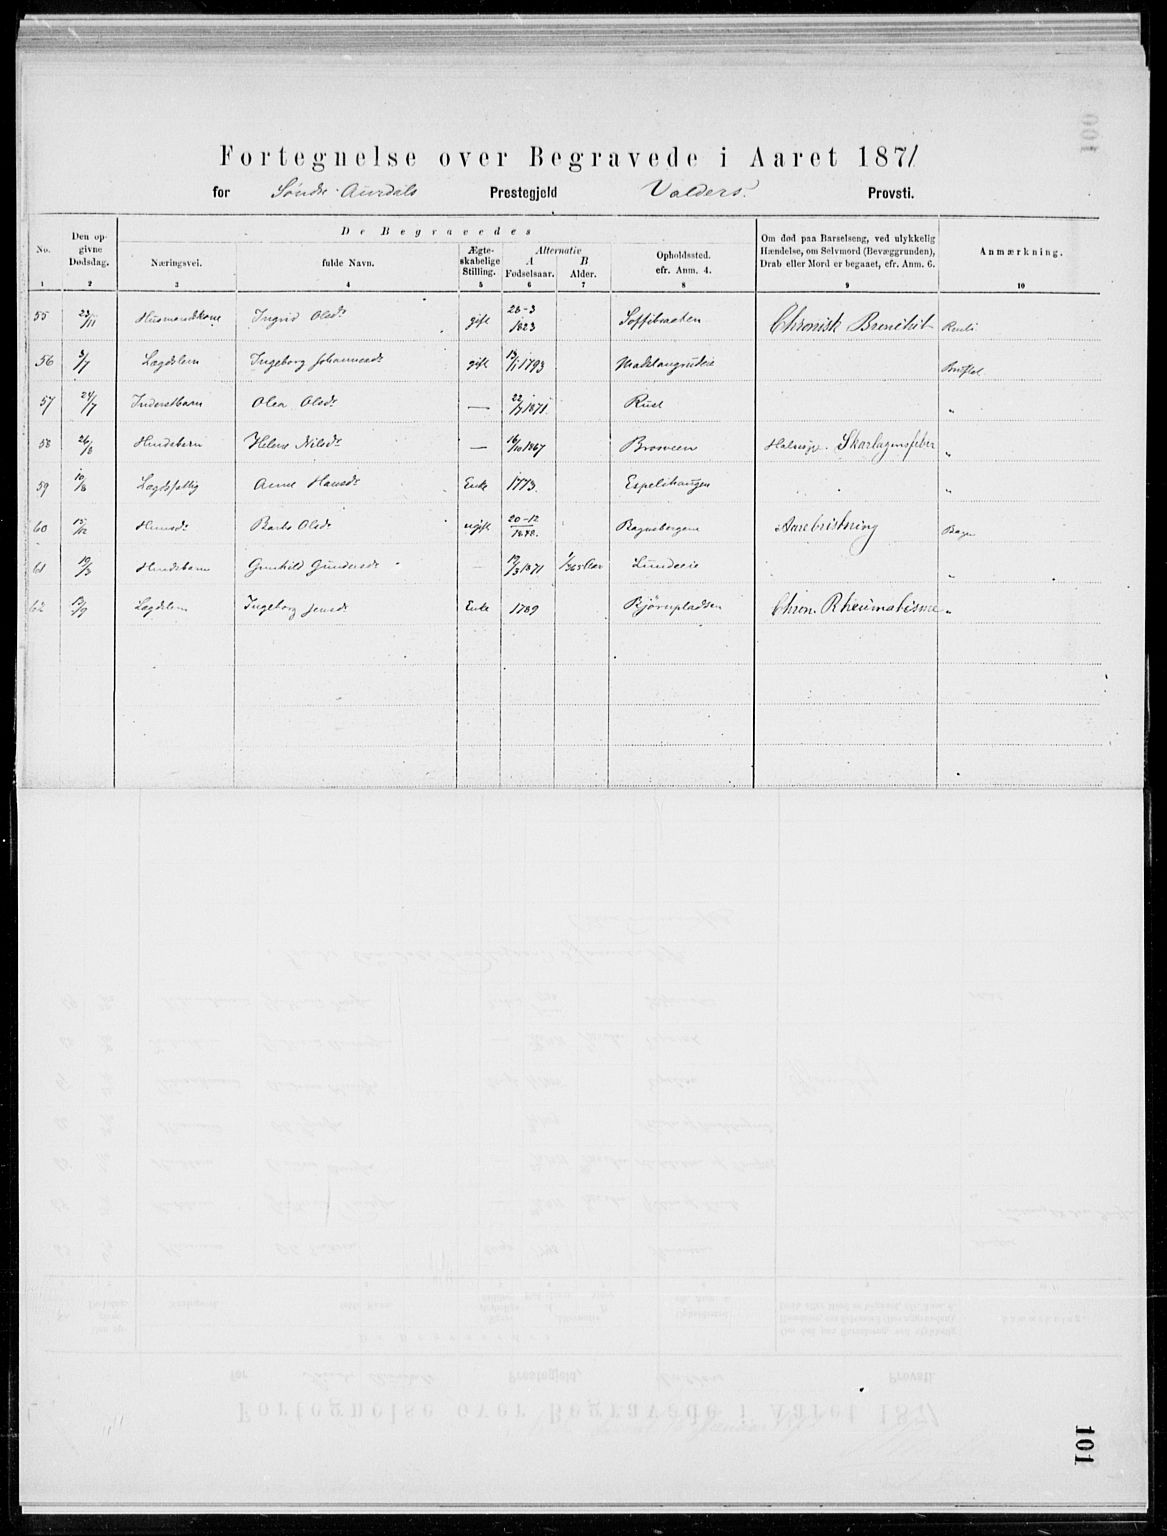 Fortegnelse over Begravede i Aaret 1871
for Søndre Aurdals Prestegjeld Valders Provsti.
De Begravedes
No. Den opgivne Dødsdag. Næringsvei. fulde Navn. Ægteskabelige Stilling. Alternativ A Fødselsaar. B Alder. Opholdssted. cfr. Anm. 4. Om død paa Barselseng, ved ulykkelig Hændelse, om Selvmord (Bevæggrunden), Drab eller Mord er begaaet, cfr. Anm. 6. Anmærkning.
1 2 3 4 5 6 7 8 9 10
55 23/11 Husmandskone Ingrid Olsdr gift 26-3 1823 Soffibraaten Chronisk Bronchit Reinli
56 3/7 Lægdslem Ingeborg Johannesdr gift 1793 Bruflat
57 24/7 Inderstbarn Olea Olsdr — 22/7 1871 Rust "
58 26/8 Huusbarn Helene Nilsdr — 16/10 1867 Skarlagensfeber "
59 10/8 Lægdsfattig Anne Hansdr Enke 1773. Espelihaugen "
60 15/12 Huusdr Barbo Olsdr ugift 20-12 Bagnsbergene Aarebristning Bagn
61 19/3 Huusbarn Gunhild Gundersdr — 19/3 1871 1/365 Aar Lundeeie "
62 Lægdslem Ingeborg Jensdr Enke 1789 Bjørnpladsen Chron. Rheumatisme "
101